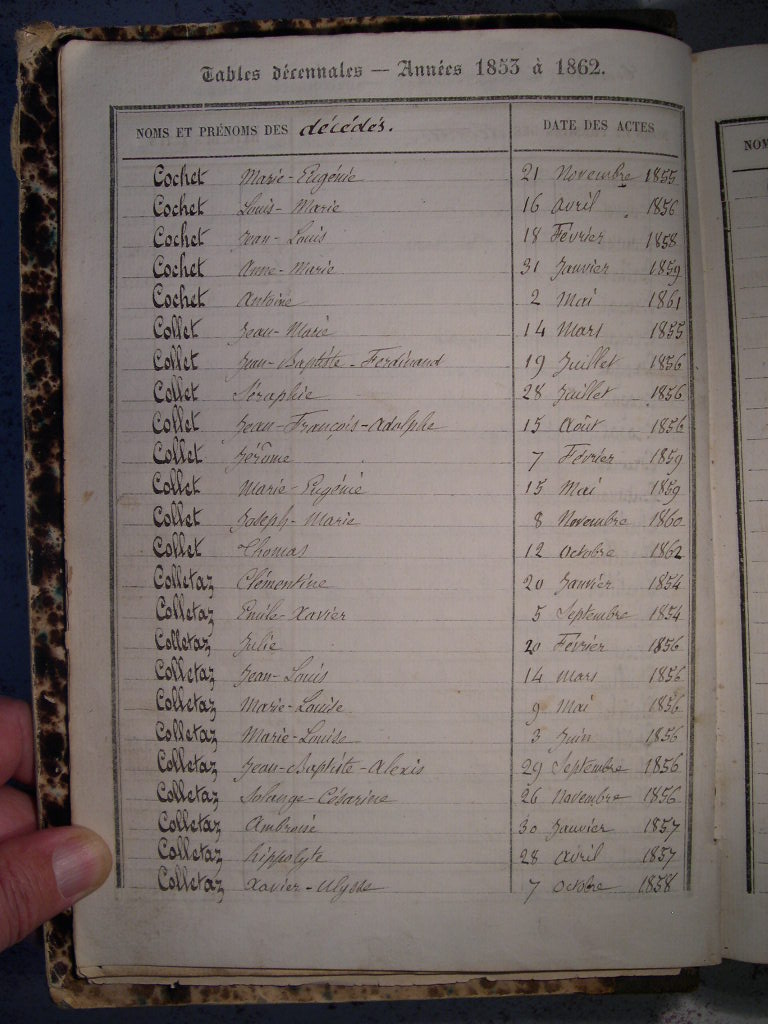 Tables décennales — Années 1853 à 1862.
NOMS ET PRÉNOMS DES décédés. DATE DES ACTES
Cochet Marie-Eugénie 21 Novembre 1855
Cochet Louis-Marie 16 avril 1856
Cochet Jean-Louis 18 Février 1858
Cochet Anne-Marie 31 Janvier 1859
Cochet Antoine 2 Mai 1861
Collet Jean-Marie 14 Mars 1855
Collet Jean-Baptiste-Ferdinand 19 Juillet 1856
Collet Séraphie 28 Juillet 1856
Collet Jean-François-Adolphe 15 Août 1856
Collet Jérôme 7 Février 1859
Collet Marie-Eugénie 15 Mai 1859
Collet Joseph-Marie 8 Novembre 1860
Collet Thomas 12 octobre 1862
Colletaz Clémentine 20 Janvier 1854
Colletaz Emile-Xavier 5 Septembre 1854
Colletaz Julie 20 Février 1856
Colletaz Jean-Louis 14 mars 1856
Colletaz Marie-Louise 9 Mai 1856
Colletaz Marie-Louise 3 Juin 1856
Colletaz Jean-Baptiste-Alexis 29 Septembre 1856
Colletaz Solange-Césarine 26 novembre 1856
Colletaz Ambroise 30 Janvier 1857
Colletaz hippolyte 28 avril 1857
Colletaz Xavier-Ulysse 7 octobre 1858
NOM